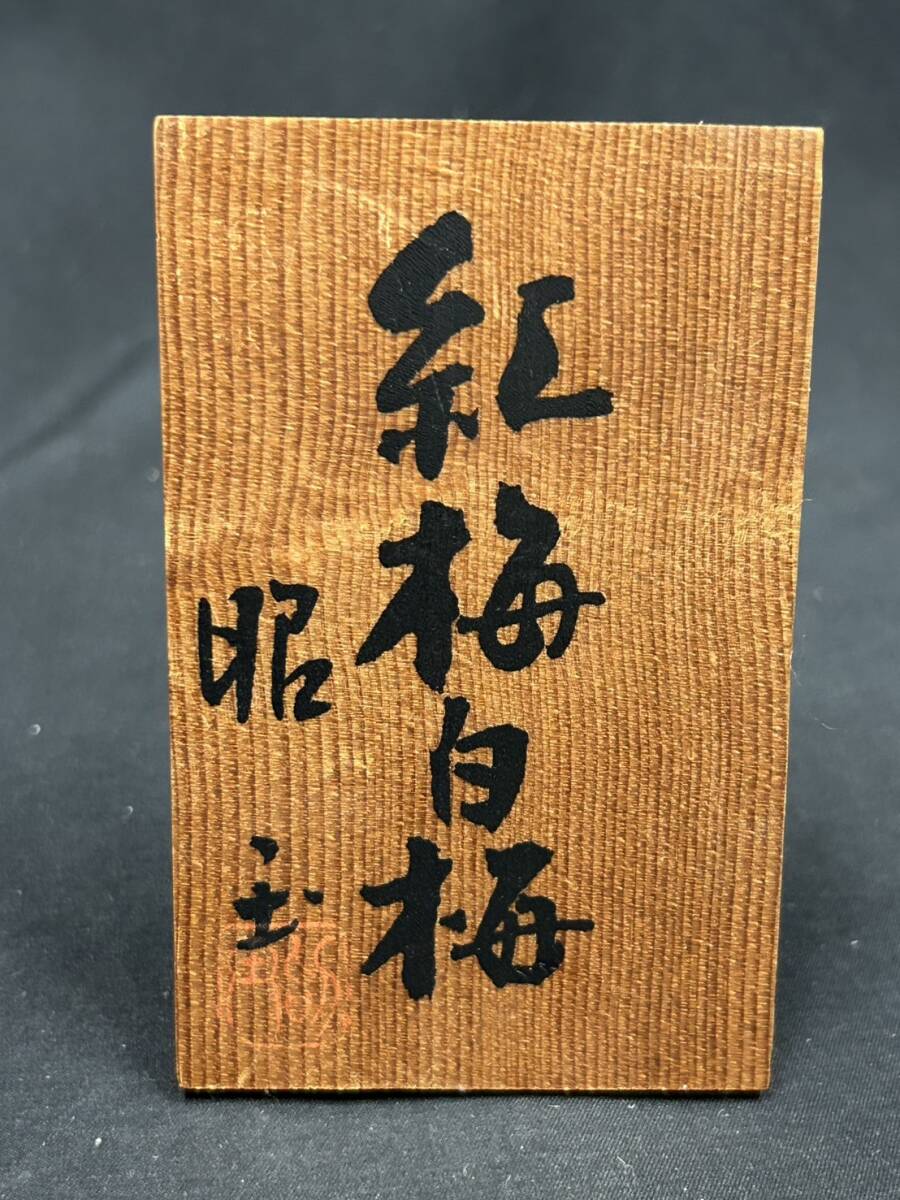 紅梅白梅
昭玉